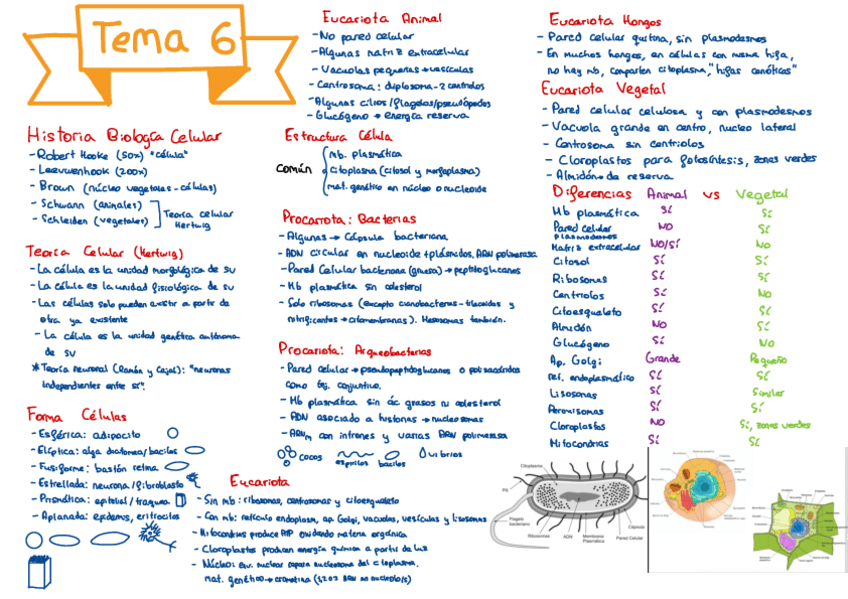 Tema 6
Historia Biología Celular
- Robert Hooke (50x) "célula"
- Leeuwenhook (200x)
- Brown (núcleo vegetales - células)
- Schwann (animales)
- Schleiden (vegetales)
Teoría celular
Hertwig
Teoría Celular (Hertwig)
- La célula es la unidad morfológica de sv
- La célula es la unidad fisiológica de sv
- Las células solo pueden existir a partir de
otra ya existente
- La célula es la unidad genética autónoma
de sv
* Teoría neuronal (Ramón y Cajal): "neuronas
independientes entre sí".
Forma Células
- Esférica: adipocito
- Elíptica: alga diatomea/bacilos
- Fusiforme: bastón retina
- Estrellada: neurona/fibroblasto
- Prismática: epitelial/traquea
- Aplanada: epidermis, eritrocitos
Eucariota Animal
- No pared celular
- Algunas matriz extracelular
- Vacuolas pequeñas → vesículas
- Centrosoma: diplosoma - 2 centriolos
- Algunas cilios/flagelos/pseudópodos
- Glucógeno → energía reserva
Estructura Célula
común
mb. plasmática
citoplasma (citosol y morfoplasma)
mat. genético en núcleo o nucleoide
Procariota: Bacterias
- Algunas → Cápsula bacteriana
- ADN circular en nucleoide + plásmidos, ARN polimerasa
- Pared Celular bacteriana (gruesa) → peptidoglucanos
- Mb plasmática sin colesterol
- Solo ribosomas (excepto cianobacterias - tilacoides y
nitrificantes → citomembranas). Mesosomas también.
Procariota: Arqueobacterias
- Pared celular → pseudopeptidoglucanos o polisacáridos
como tej. conjuntivo.
- Mb plasmática sin ác grasos ni colesterol
- ADN asociado a histonas → nucleosomas
- ARNm con intrones y varias ARN polimerasa
cocos espirilos bacilos vibrios
Eucariota
- Sin mb: ribosomas, centrosomas y citoesqueleto
- Con mb: retículo endoplasm, ap Golgi, vacuolas, vesículas y lisosomas
- Mitocondrias produce ATP oxidando materia orgánica
- Cloroplastos producen energía química a partir de luz
- Núcleo: env. nuclear separa nucleoplasma del citoplasma.
mat. genético → cromatina
Eucariota Hongos
- Pared celular quitina, sin plasmodesmos
- En muchos hongos, en células con misma hifa,
no hay mb, comparten citoplasma, "hifas cenóticas"
Eucariota Vegetal
- Pared celular celulosa y con plasmodesmos
- Vacuola grande en centro, nucleo lateral
- Centrosoma sin centriolos
- Cloroplastos para fotosíntesis, zonas verdes
- Almidón de reserva
Diferencias Animal vs Vegetal
Mb plasmática Sí Sí
Pared celular NO Sí
plasmodesmos
Matriz extracelular NO/Sí No
Citosol Sí Sí
Ribosomas Sí Sí
Centriolos Sí No
Citoesqueleto Sí Sí
Almidón No Sí
Glucógeno Sí No
Ap. Golgi Grande Pequeño
ret. endoplasmático Sí Sí
Lisosomas Sí Similar
Peroxisomas Sí Sí
Cloroplastos No Sí, zonas verdes
Mitocondrias Sí Sí
Citoplasma
Pili
Flagelo
bacteriano
Ribosomas
ADN
Membrana
Plasmática
Cápsula
Pared Celular